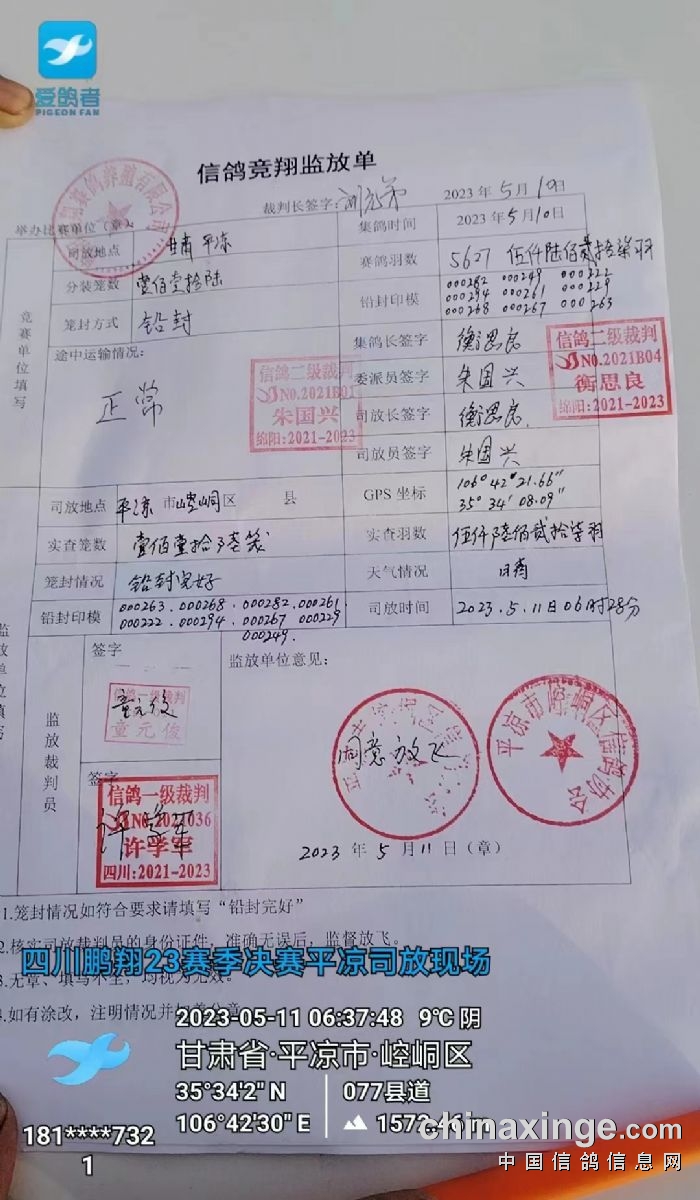 爱鸽者
PIGEON FAN
信鸽竞翔监放单
裁判长签字: 2023 年 5 月 10 日
举办比赛单位（章） 集鸽时间 2023 年 5 月 10 日
竞赛单位填写
司放地点 甘肃 平凉 赛鸽羽数 5627 伍仟陆佰贰拾柒羽
分装笼数 壹佰壹拾陆 铅封印模 000282 000249 000222
000294 000261 000229
000268 000267 000263
笼封方式 铅封
途中运输情况: 正常
集鸽长签字 衡思良
委派员签字 朱国兴
司放长签字 衡思良
司放员签字 朱国兴
信鸽二级裁判
NO.2021B01
朱国兴
绵阳:2021-2023
信鸽二级裁判
NO.2021B04
衡思良
绵阳:2021-2023
司放地点 平凉 市 崆峒 区 县 GPS 坐标 106° 42' 21.66"
35° 34' 08.09"
实查笼数 壹佰壹拾陆笼 实查羽数 伍仟陆佰贰拾柒羽
笼封情况 铅封完好 天气情况 日晴
铅封印模 000263. 000268. 000282. 000261.
000222. 000294. 000267 000229
000249.
司放时间 2023.5.11日06时28分
监放裁判员
签字
信鸽一级裁判
童元俊
童元俊
签字
信鸽一级裁判
许学军
四川:2021-2023
监放单位意见:
同意放飞
平凉市崆峒区信鸽协会
2023 年 5 月 11 日（章）
1.笼封情况如符合要求请填写“铅封完好”
2.核实司放裁判员的身份证件，准确无误后，监督放飞。
3.无章、填写不全，均视为无效。
4.如有涂改，注明情况并加盖公章
四川鹏翔23赛季决赛平凉司放现场
2023-05-11 06:37:48 9℃ 阴
甘肃省·平凉市·崆峒区
35°34'2" N 077县道
106°42'30" E
181****732
1
chinaxinge.com
中国信鸽信息网